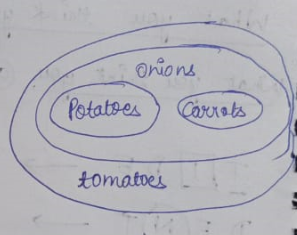 onions
Potatoes Carrots
tomatoes